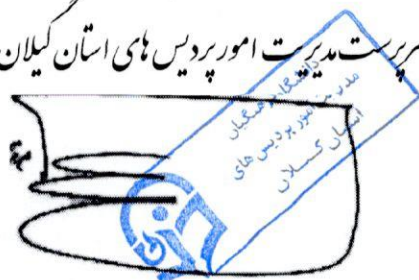 سرپرست مدیریت امور پردیس های استان گیلان
دانشگاه فرهنگیان
مدیریت امور پردیس های
استان گیلان